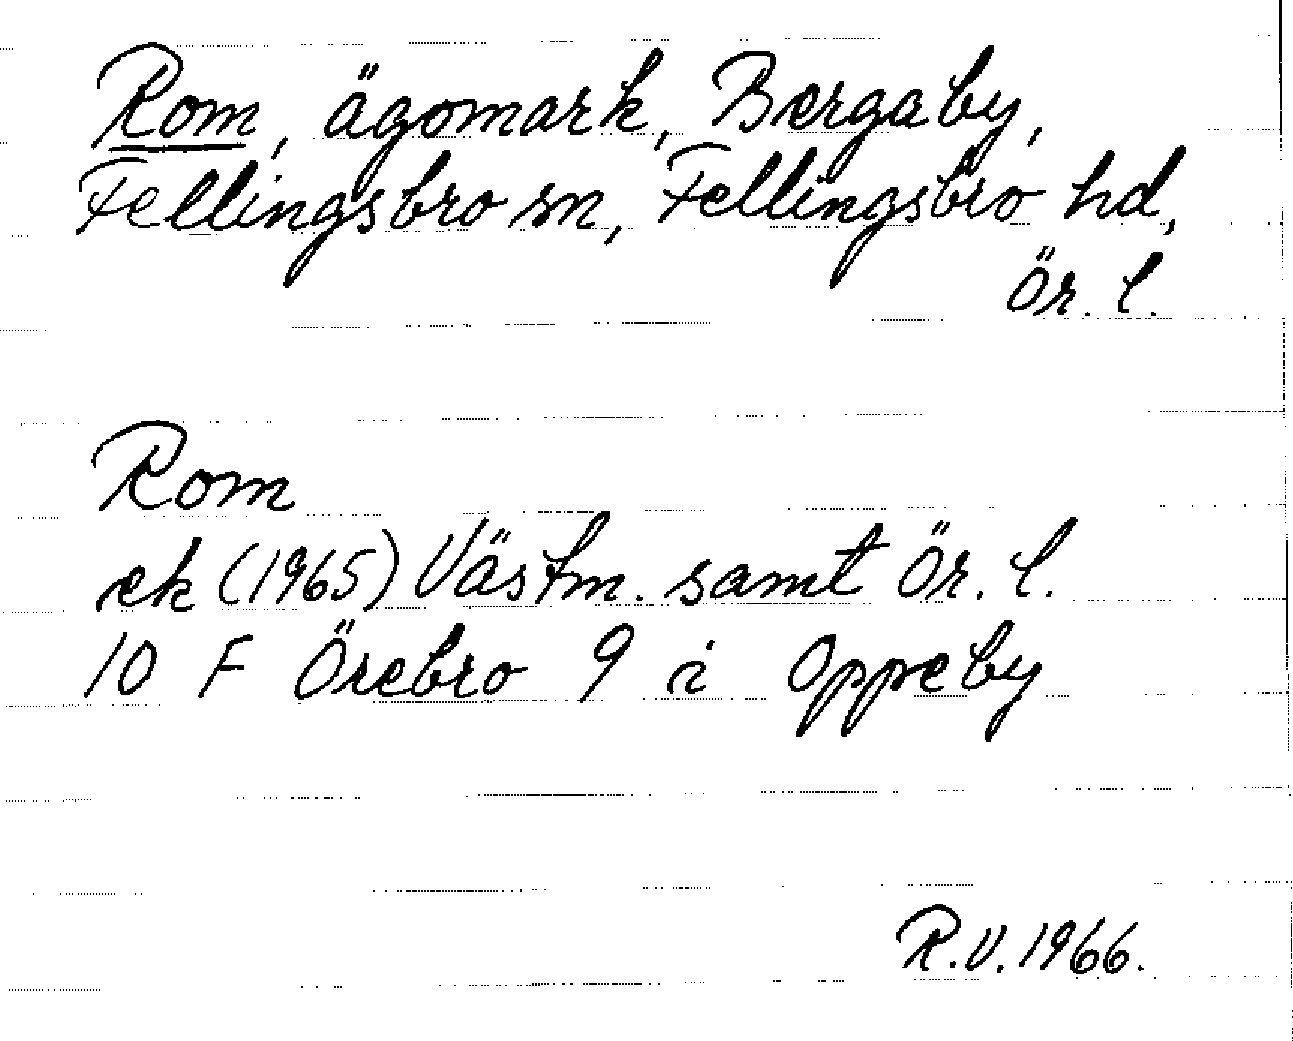 Rom, ägomark, Bergaby,
Fellingsbro sn, Fellingsbro hd,
Ör. l.
Rom
ek (1965) Västm. samt Ör. l.
10 F Örebro 9 i Oppeby
R.V. 1966.